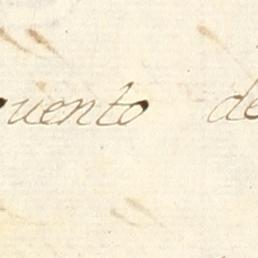 uento de